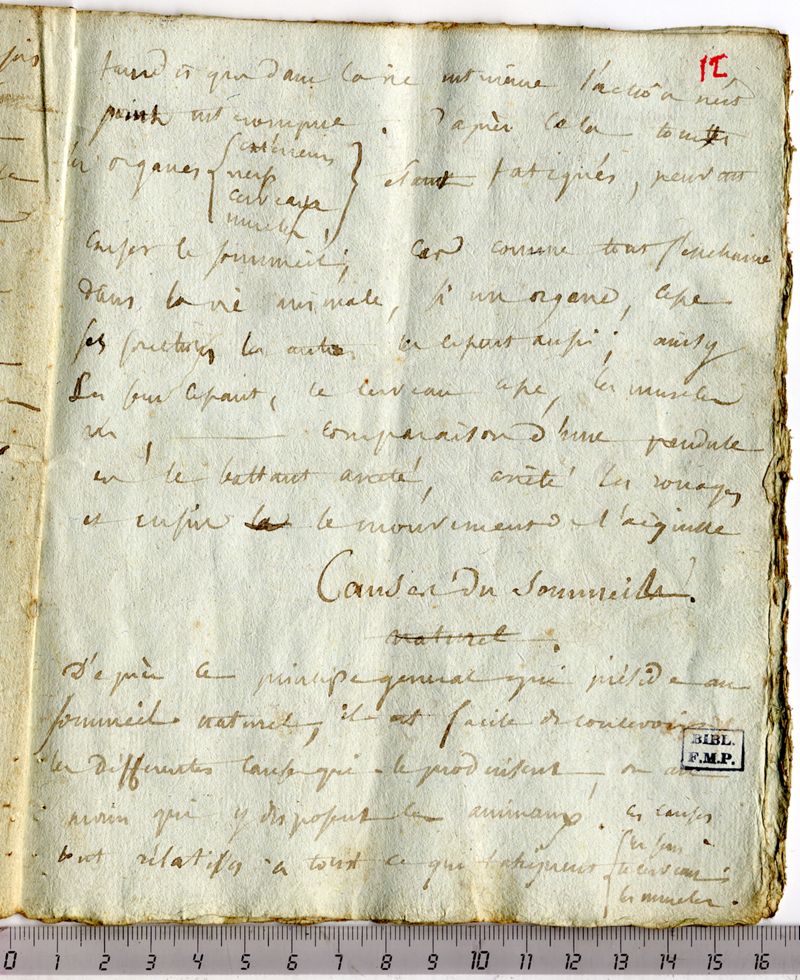 12
tandis que dans la vie interne l'action n'est
point interrompue. D'après cela toutes
les organes { extérieurs
nerfs
cerveau
muscles } étant fatigués, peuvent
causer le sommeil; car comme tout s'enchaine
dans la vie animale, si un organe, cesse
ses fonctions les autres les cessent aussi; ainsy
Les sens cessant, le cerveau cesse, les muscles
comparaison d'une pendule
le battant arreté, arrété les rouages
et enfin le mouvement de l'aiguille
Causes du sommeil.
naturel.
D'après ce principe general qui préside au
sommeil naturel, il est facile de concevoir
les differentes causes qui le produisent, ou au
moin qui y disposent les animaux. ces causes
sont relatifs a tout ce qui fatiguent { les sens
le cerveau
les muscles.
BIBL.
F.M.P.
0 1 2 3 4 5 6 7 8 9 10 11 12 13 14 15 16